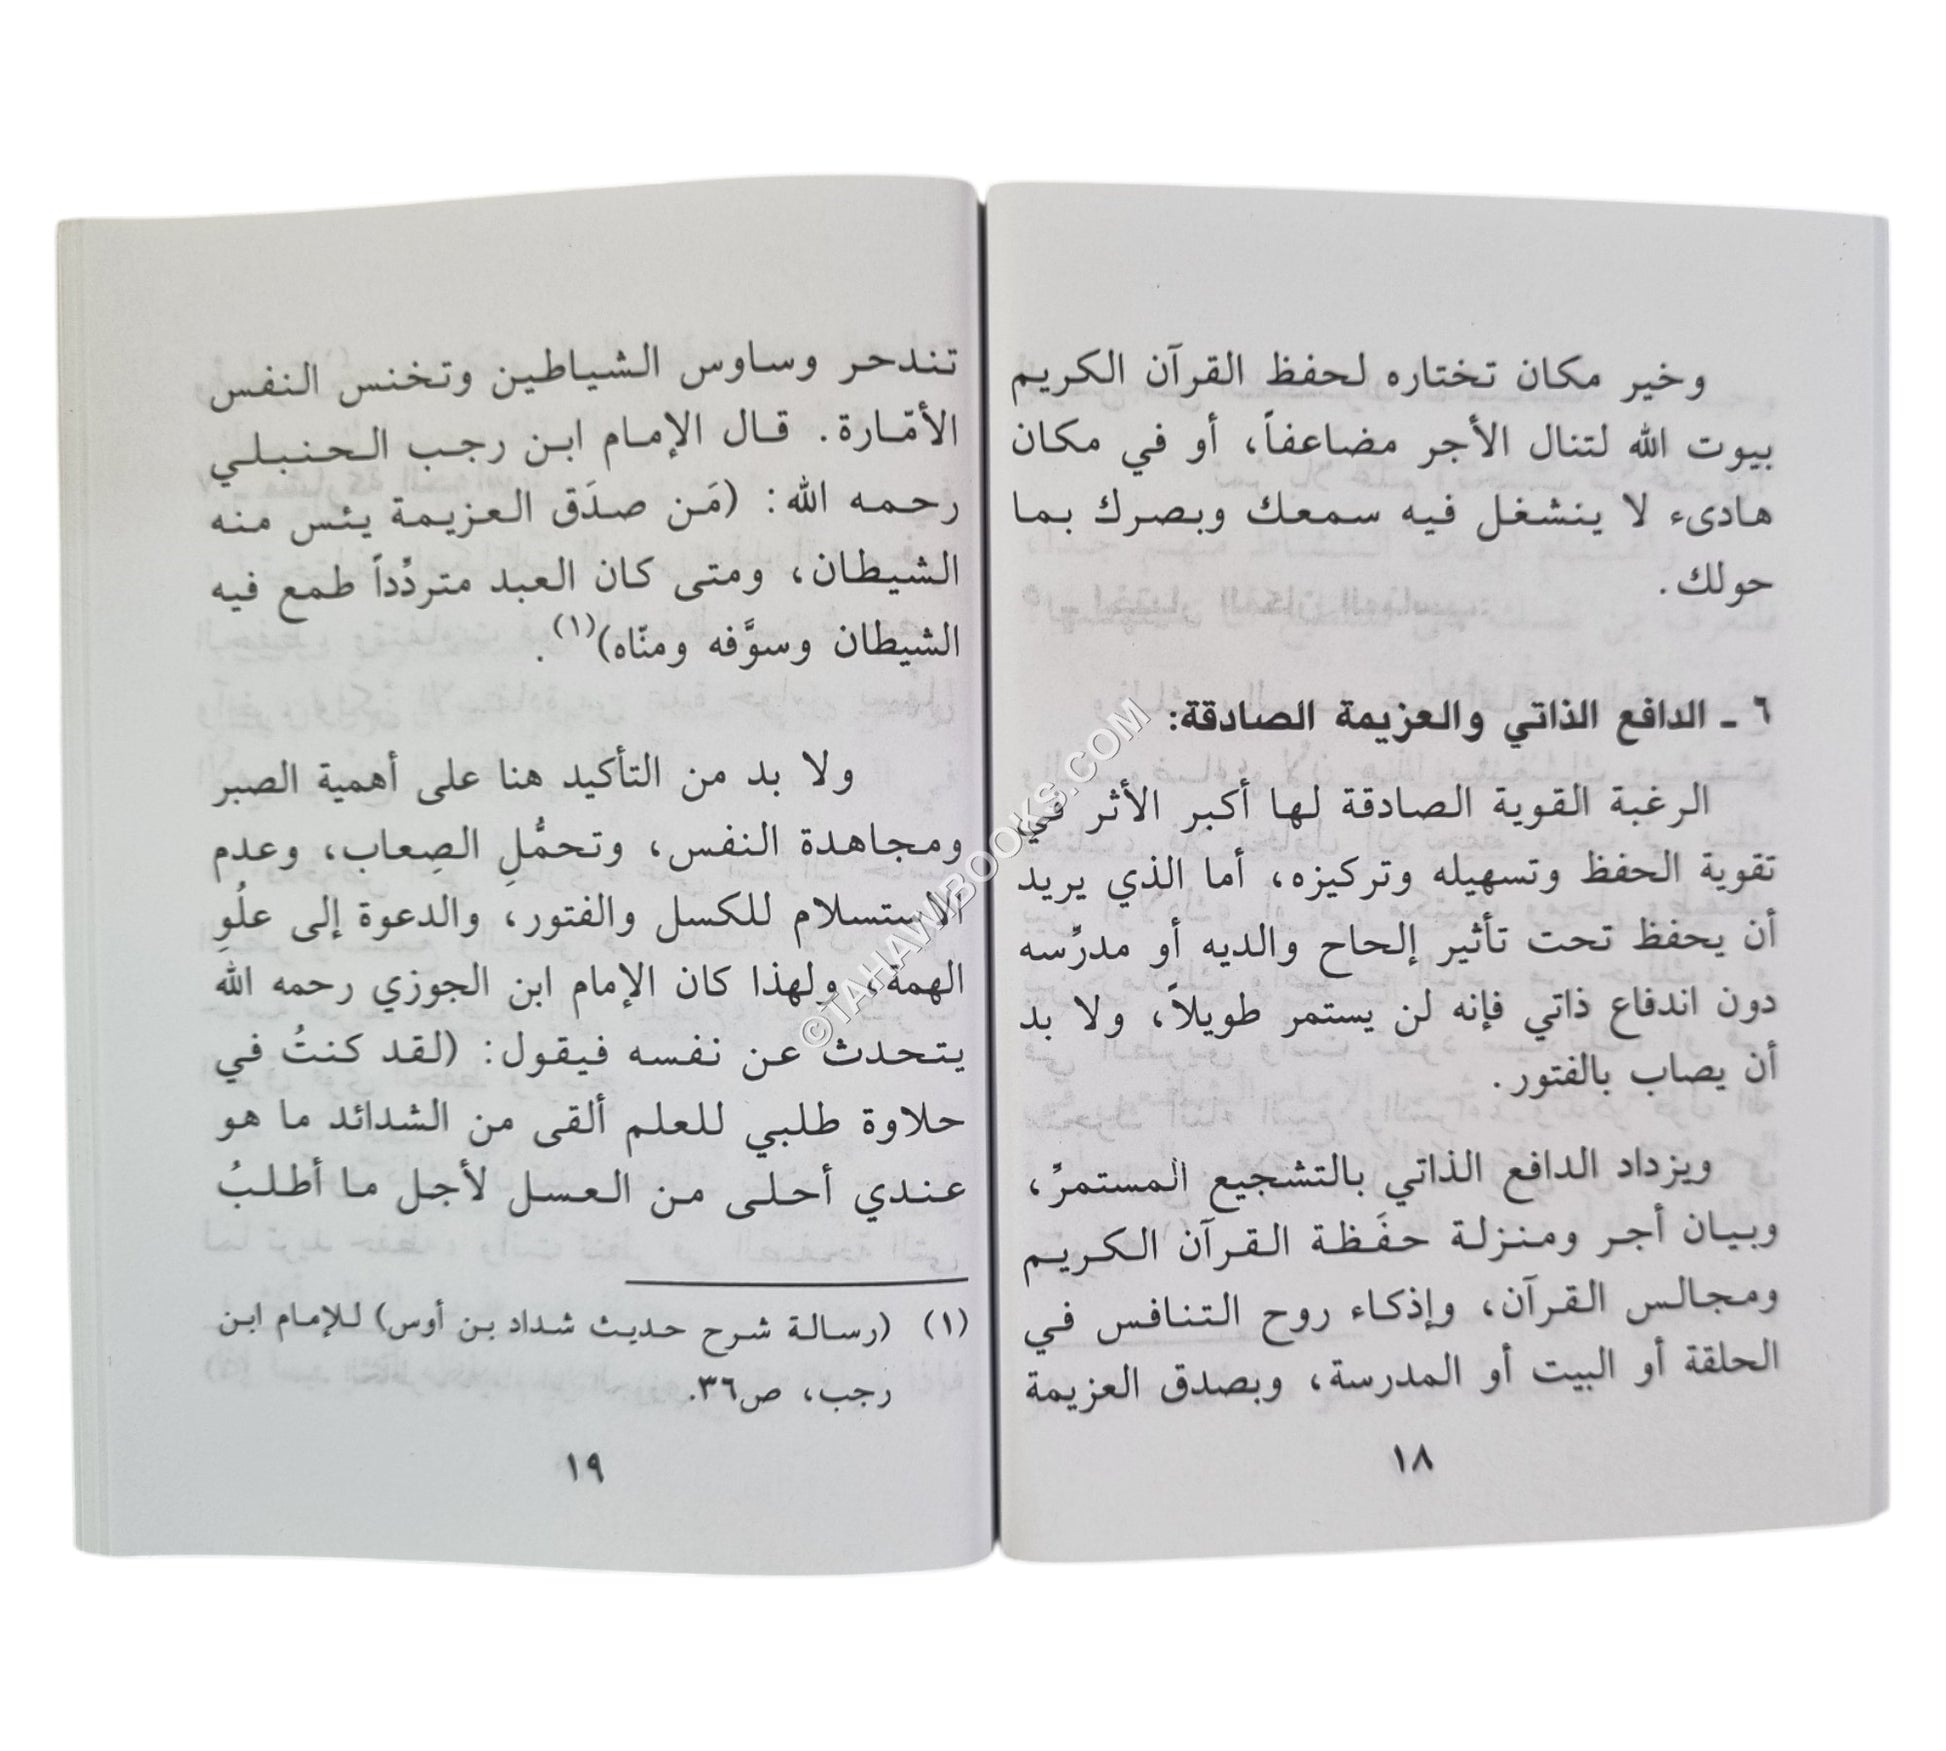 وخير مكان تختاره لحفظ القرآن الكريم
بيوت الله لتنال الأجر مضاعفاً، أو في مكان
هادىء لا ينشغل فيه سمعك وبصرك بما
حولك.
٦ ـ الدافع الذاتي والعزيمة الصادقة:
الرغبة القوية الصادقة لها أكبر الأثر في
تقوية الحفظ وتسهيله وتركيزه، أما الذي يريد
أن يحفظ تحت تأثير إلحاح والديه أو مدرِّسه
دون اندفاع ذاتي فإنه لن يستمر طويلاً، ولا بد
أن يصاب بالفتور.
ويزداد الدافع الذاتي بالتشجيع المستمرِّ،
وبيان أجر ومنزلة حفَظة القرآن الكريم
ومجالس القرآن، وإذكاء روح التنافس في
الحلقة أو البيت أو المدرسة، وبصدق العزيمة
١٨
تندحر وساوس الشياطين وتخنس النفس
الأمّارة. قال الإمام ابن رجب الحنبلي
رحمه الله: (مَن صدَق العزيمة يئس منه
الشيطان، ومتى كان العبد متردِّداً طمع فيه
الشيطان وسوَّفه ومنّاه)(١).
ولا بد من التأكيد هنا على أهمية الصبر
ومجاهدة النفس، وتحمُّلِ الصِعاب، وعدم
الاستسلام للكسل والفتور، والدعوة إلى علُوِ
الهمة، ولهذا كان الإمام ابن الجوزي رحمه الله
يتحدث عن نفسه فيقول: (لقد كنتُ في
حلاوة طلبي للعلم ألقى من الشدائد ما هو
عندي أحلى من العسل لأجل ما أطلبُ
(١) (رسالة شرح حديث شداد بن أوس) للإمام ابن
رجب، ص٣٦.
١٩
©TAHAWIBOOKS.COM